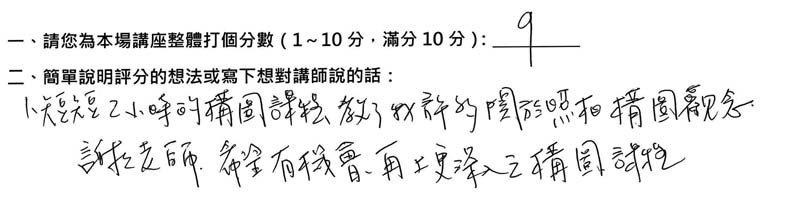 一、請您為本場講座整體打個分數（1~10分，滿分10分）：9
二、簡單說明評分的想法或寫下想對講師說的話：
短短2小時的構圖課程、教了我許多關於照相構圖觀念.
謝謝老師.希望有機會、再上更深入之構圖課程